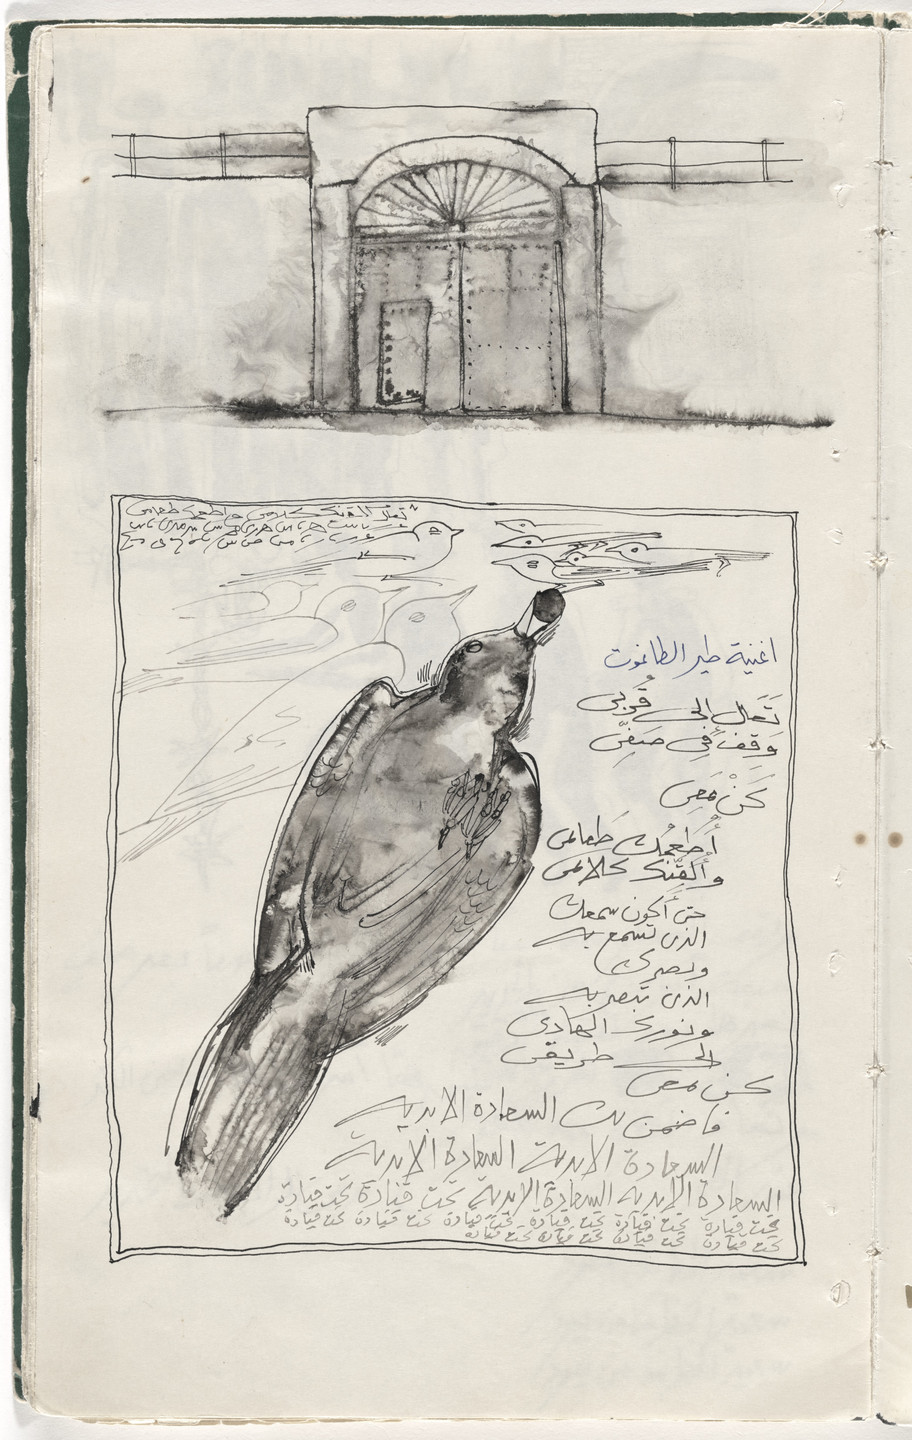 تعال القنك كلامى واطعمك طعامى
اغنية طير الطاغوت
تَعَال إلى قُربى
وَقِف فِى صَفِّى
كُنْ مَعِى
أُطعِمُك طَعامى
وأُلَقِّنك كلامى
حتى أكون سمعك
الذى تسمع به
وبصرك
الذى تبصر به
ونورك الهادى
إلى طريقى
كن معى
فاضمن لك السعادة الابدية
السعادة الابدية السعادة الأبدية
السعادة الابدية السعادة الابدية تحت قيادة تحت قيادة
تحت قيادة تحت قيادة تحت قيادة تحت قيادة تحت قيادة تحت قيادة
تحت قيادة تحت قيادة تحت قيادة تحت قيادة